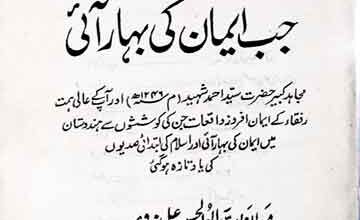 جب ایمان کی بہار آئی
مجاہد کبیر حضرت سید احمد شہیدؒ (م ۱۲۴۶ھ) اور آپ کے عالی ہمت
رفقاء کے ایمان افروز واقعات جن کی کوششوں سے ہندوستان
میں ایمان کی بہار آئی اور اسلام کی ابتدائی صدیوں
کی یاد تازہ ہوگئی